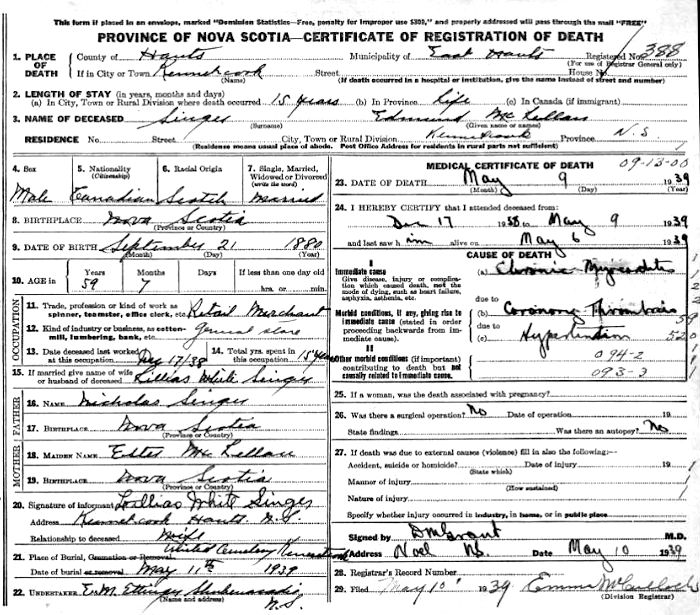 This form if placed in an envelope, marked "Dominion Statistics—Free, penalty for improper use $300," and properly addressed will pass through the mail "FREE"
PROVINCE OF NOVA SCOTIA—CERTIFICATE OF REGISTRATION OF DEATH
1. PLACE OF DEATH County of Hants Municipality of East Hants Registered No. 388
(For use of Registrar General only)
If in City or Town Kennetcook Street House No.
(Name) (If death occurred in a hospital or institution, give the name instead of street and number)
2. LENGTH OF STAY (in years, months and days)
(a) In City, Town or Rural Division where death occurred 15 years (b) In Province Life (c) In Canada (if immigrant)
3. NAME OF DECEASED Singer Edmund McLellan
(Surname) (Given name or names)
RESIDENCE No. Street City, Town or Rural Division Kennetcook Province N.S.
(Residence means usual place of abode. Post Office Address for residents in rural parts not sufficient)
4. Sex 5. Nationality (Citizenship) 6. Racial Origin 7. Single, Married, Widowed or Divorced (write the word)
Male Canadian Scotch Married
8. BIRTHPLACE Nova Scotia
(Province or Country)
9. DATE OF BIRTH September 21 1880
(Month) (Day) (Year)
10. AGE in Years Months Days If less than one day
59 7 hrs. or min.
OCCUPATION
11. Trade, profession or kind of work as spinner, teamster, office clerk, etc. Retail Merchant
12. Kind of industry or business, as cotton-mill, lumbering, bank, etc. General store
13. Date deceased last worked at this occupation Dec 17/38 14. Total yrs. spent in this occupation 15 years
15. If married give name of wife or husband of deceased Lillias White Singer
FATHER
16. NAME Nicholas Singer
17. BIRTHPLACE Nova Scotia
(Province or Country)
MOTHER
18. MAIDEN NAME Ester McLellan
19. BIRTHPLACE Nova Scotia
(Province or Country)
20. Signature of informant Lillias White Singer
Address Kennetcook Hants N.S.
Relationship to deceased Wife
21. Place of Burial, Cremation or Removal United Cemetery Kennetcook
Date of burial or removal May 11th 1939
22. UNDERTAKER E.M. Ettinger Shubenacadie
(Name and address) N.S.
MEDICAL CERTIFICATE OF DEATH 09-13-00
23. DATE OF DEATH May 9 1939
(Month) (Day) (Year)
24. I HEREBY CERTIFY that I attended deceased from:
Dec 17 1938 to May 9 1939
and last saw him alive on May 6 1939
CAUSE OF DEATH
I
Immediate cause (a) Chronic Myocarditis
Give disease, injury or complication which caused death, not the mode of dying, such as heart failure, asphyxia, asthenia, etc.
due to
Morbid conditions, if any, giving rise to immediate cause (stated in order proceeding backwards from immediate cause) (b) Coronary Thrombosis
due to
(c) Hypertension
II
Other morbid conditions (if important) contributing to death but not causally related to immediate cause.
094-2
093-3
25. If a woman, was the death associated with pregnancy?
26. Was there a surgical operation? No Date of operation 19
State findings Was there an autopsy? No
27. If death was due to external causes (violence) fill in also the following:
Accident, suicide or homicide? Date of injury 19
(State which)
Manner of injury
(How sustained)
Nature of injury
Specify whether injury occurred in industry, in home, or in public place
Signed by M.D.
Address Noel N.S. Date May 10 1939
28. Registrar's Record Number
29. Filed May 10 1939 Emma McCulloch
(Division Registrar)